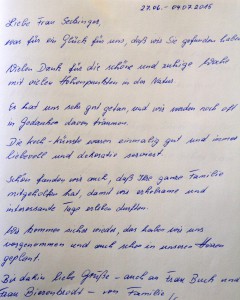 27.06. - 04.07.2015
Liebe Frau
was für ein Glück für uns, daß wir Sie gefunden haben
Vielen Dank für die schöne und ruhige Woche
mit vielen Höhenpunkten in der Natur.
Er hat uns sehr gut getan, und wir werden noch oft
in Gedanken davon träumen.
Die Koch-Künste waren einmalig gut und immer
liebevoll und dekorativ serviert.
Schön fanden wir auch, daß Ihre ganze Familie
mitgeholfen hat, damit wir erholsame und
interessante Tage erleben durften.
Wir kommen sicher wieder, das haben wir uns
vorgenommen und auch schon in unseren Herzen
geplant.
Bis dahin liebe Grüße - auch an Frau Buch und
Frau - von Familie